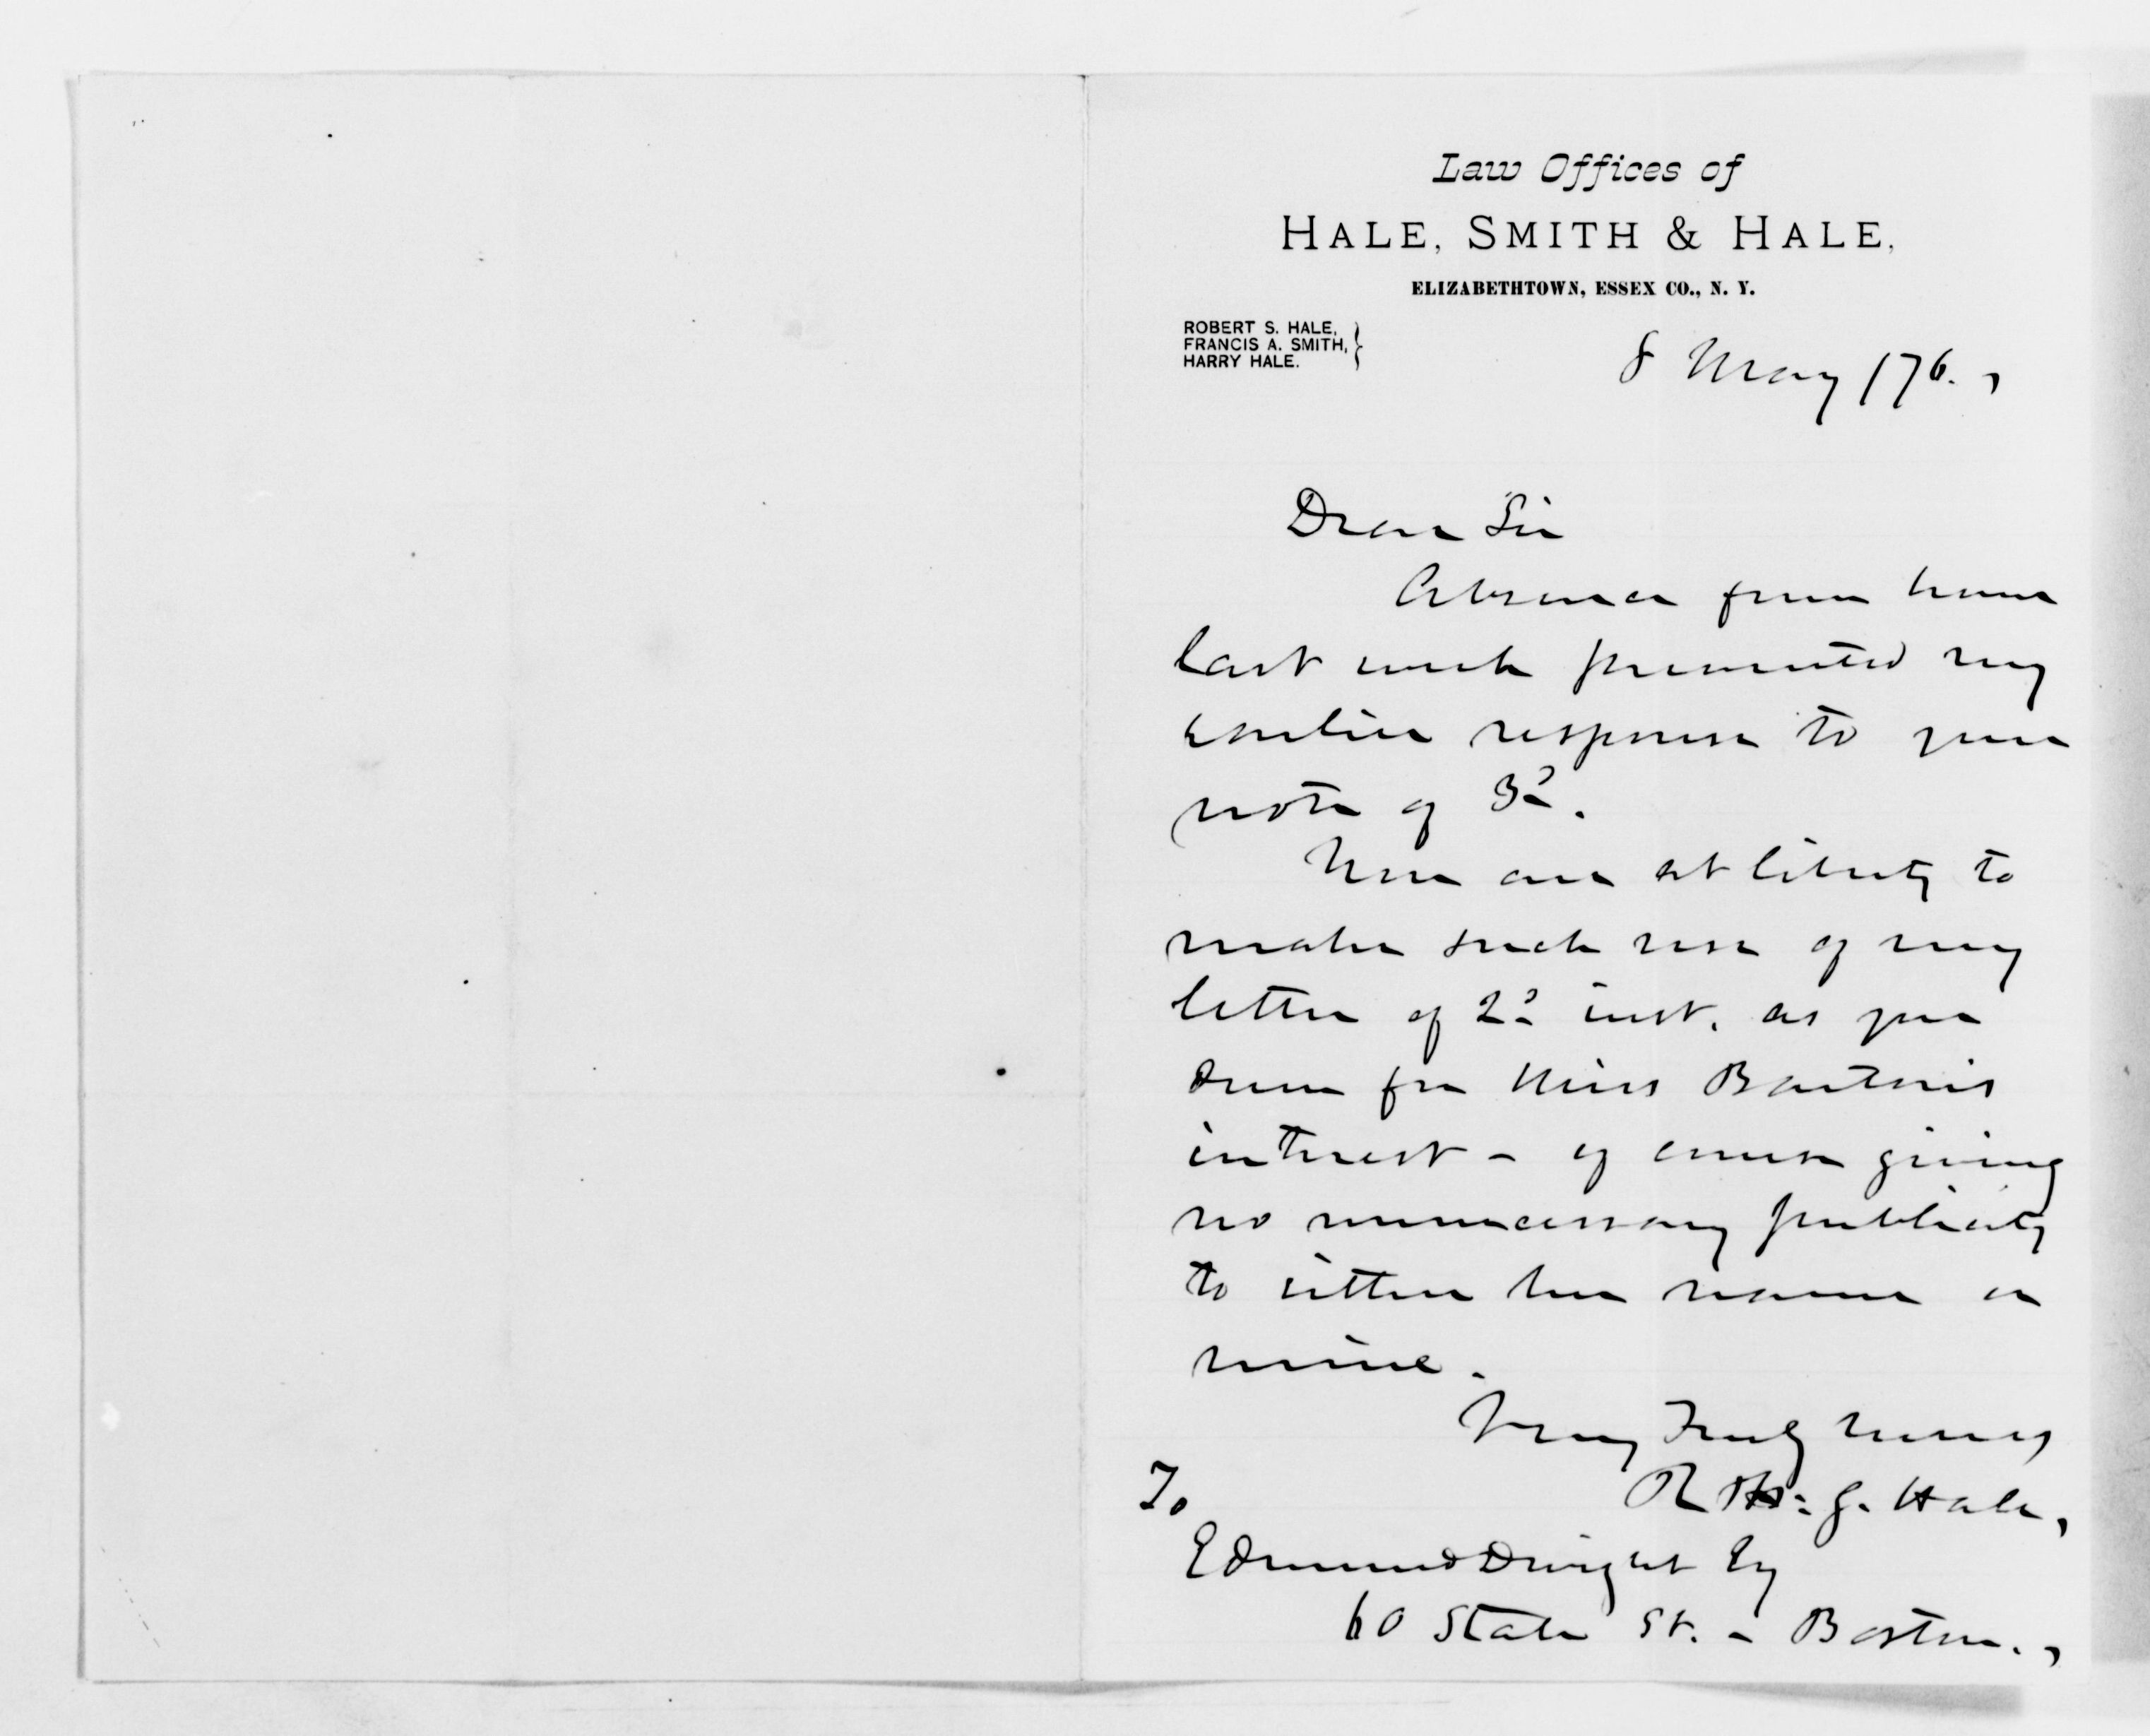 Law Offices of
HALE, SMITH & HALE,
ELIZABETHTOWN, ESSEX CO., N. Y.
ROBERT S. HALE,
FRANCIS A. SMITH,
HARRY HALE.
8 May /76.,
Dear Sir
Absence from home
last week prevented my
earlier response to your
note of 3d.
You are at liberty to
make such use of my
letter of 2d inst. as you
deem for Miss Barton's
interest - of course giving
no unnecessary publicity
to either her name or
mine.
Very Truly Yours
R. S. Hale,
To
Edmund Dwight Esq
60 State St. - Boston.,